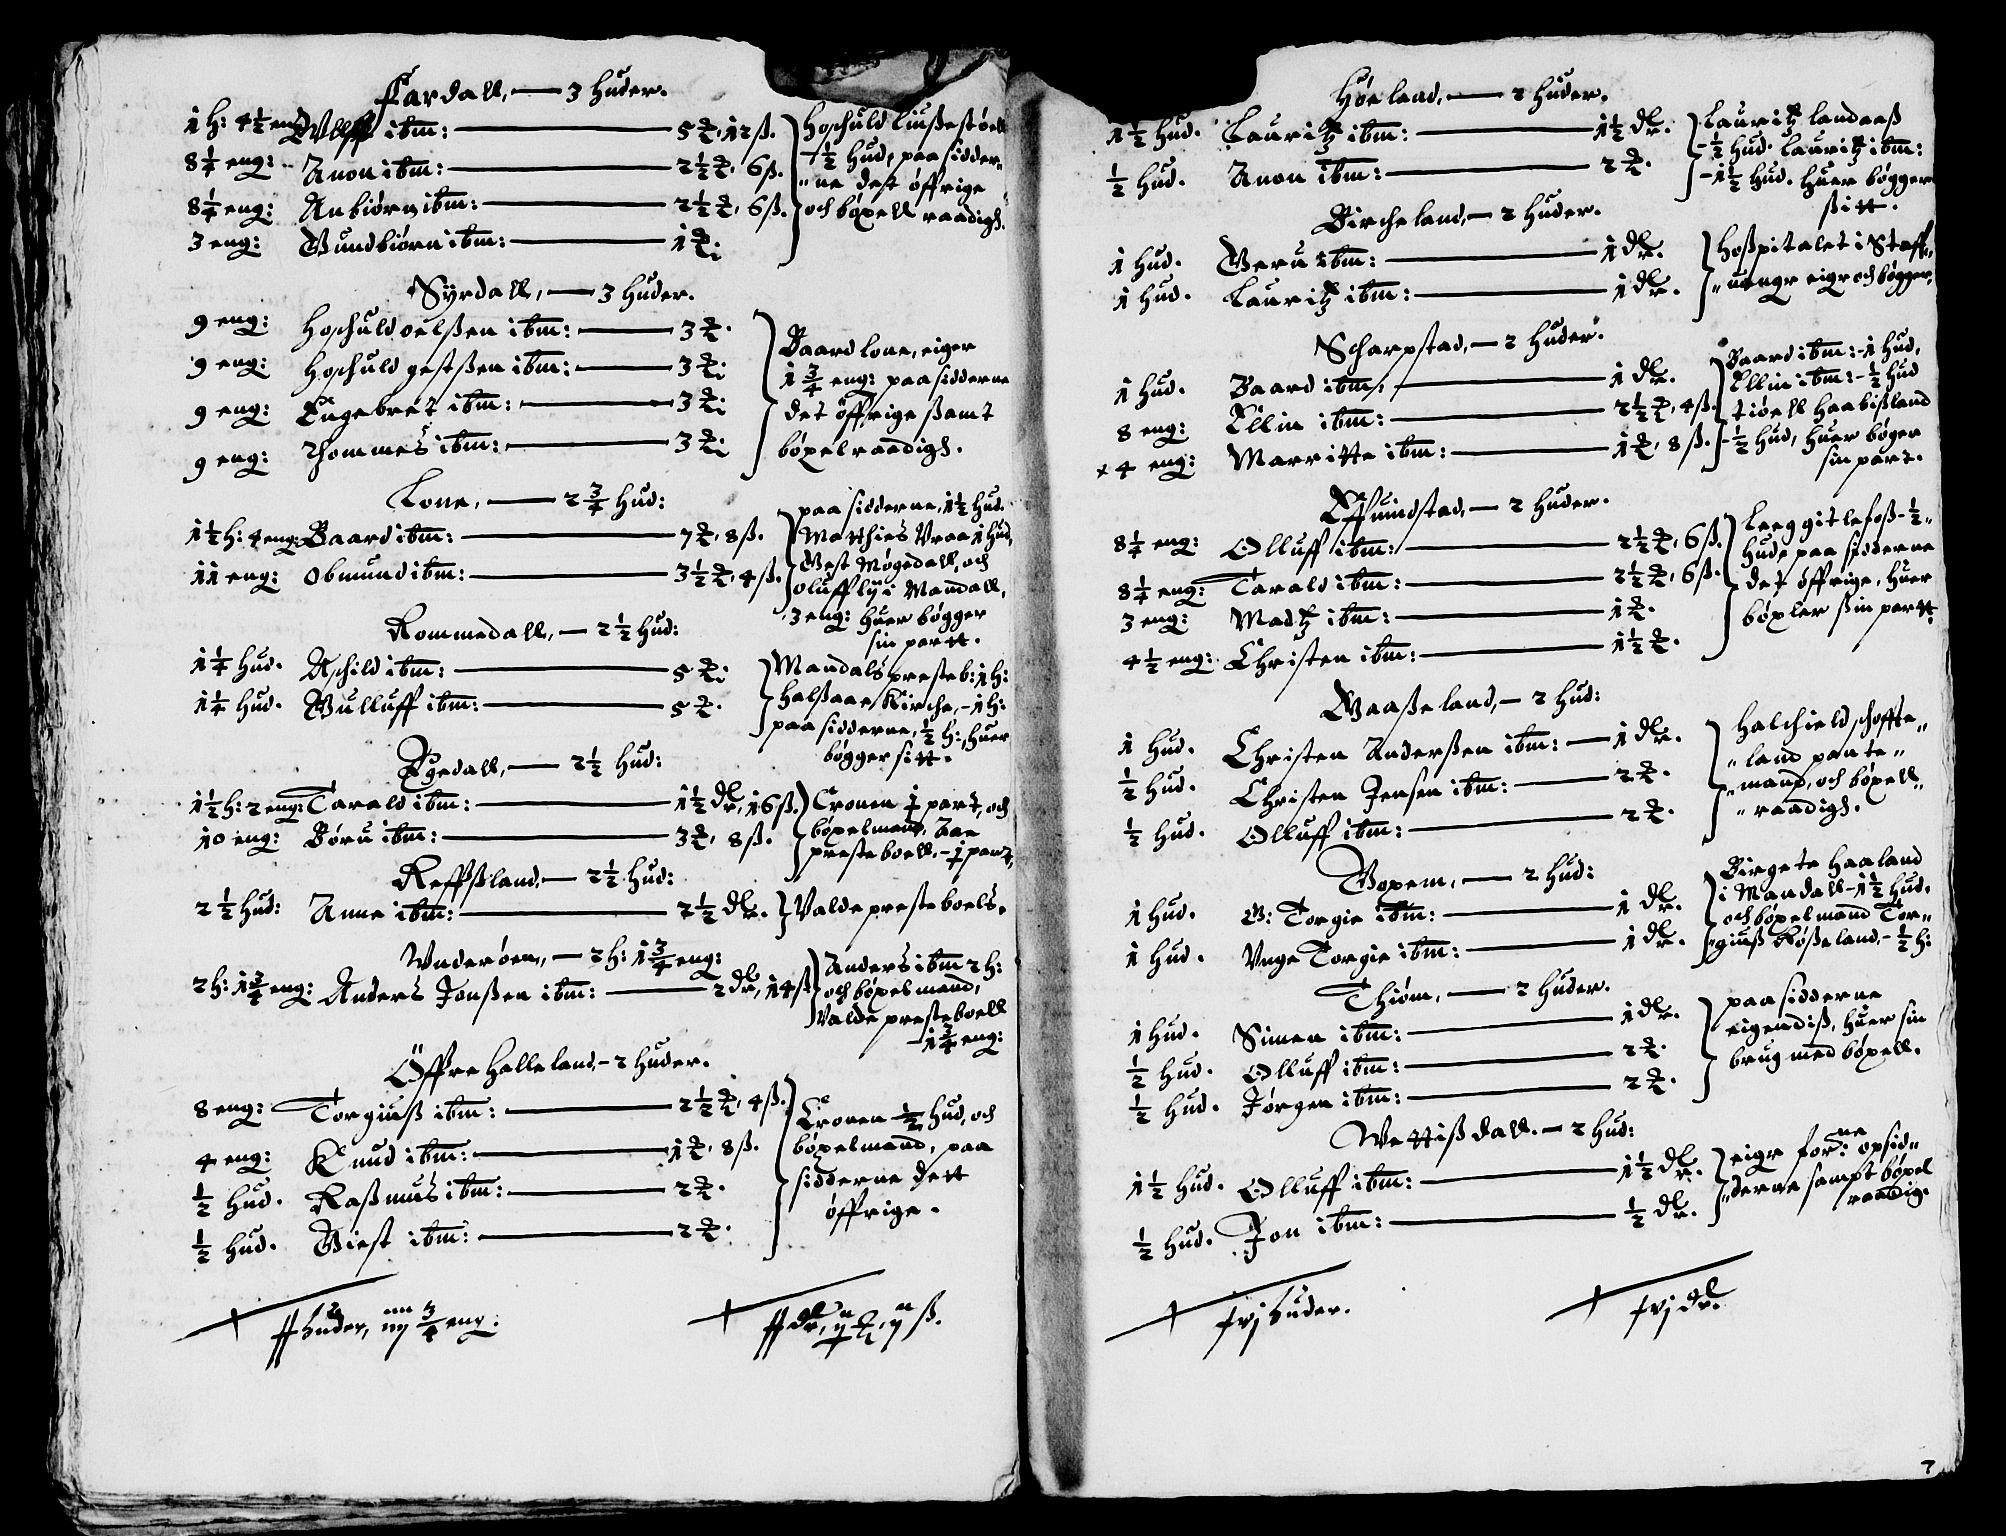 Fardall, — 3 Huder.
1 H: 4½ eng Wlff ibm: — 5 ₰, 12 ß.
8¼ eng: Anon ibm: — 2½ ₰, 6 ß.
8¼ eng: Anbiørn ibm: — 2½ ₰, 6 ß.
3 eng: Gundbiørn ibm: — 1 ₰.
Hoschuld Liußestöell
½ Hud, paa sidder-
"ne dest øffrige
och böxell raadigh.
Syrdall, — 3 Huder.
9 eng: Hoschuld oelßen ibm: — 3 ₰.
9 eng: Hoschuld gestßen ibm: — 3 ₰.
9 eng: Engebret ibm: — 3 ₰.
9 eng: Thommes ibm: — 3 ₰.
Baard lone, eiger
1¾ eng: paa sidderne
det öffrige ßamt
böxel raadigh.
Lone, — 2¾ Hud:
1½ H: 4 eng: Baard ibm: — 7 ₰, 8 ß.
11 eng: Obmund ibm: — 3½ ₰, 4 ß.
paa sidderne, 1½ Hud.
Matthies Vraa 1 Hud,
Vest Møgedall, och
oluff lÿ i Mandall,
3 eng: Huer bøgger
sin partt.
Rommedall, — 2½ Hud:
1¼ Hud. Aschild ibm: — 5 ₰.
1¼ Hud. Gulluff ibm: — 5 ₰.
Mandals presteb: 1 H:
Halßaae Kirche, - 1 H:
paa sidderne, ½ H:, Huer
bøgger sitt.
Egedall, — 2½ Hud:
1½ H: 2 eng: Tarald ibm: — 1½ dlr, 16 ß.
10 eng: Børu ibm: — 3 ₰, 8 ß.
Cronen j part, och
böxelmand, Aae
presteboell, - j part,
Reffßland, — 2½ Hud:
2½ Hud: Anne ibm: — 2½ dlr.
Valde presteboels.
Wnderøen, — 2 H: 1¾ eng:
2 H: 1¾ eng: Anders Jonßen ibm: — 2 dlr, 14 ß
Anders ibm 2 H:
och böxelmand,
Valde presteboell
- 1¾ eng:
Öffre Halleland - 2 Huder.
8 eng: Torgiuß ibm: — 2½ ₰, 4 ß.
4 eng: Knud ibm: — 1 ₰, 8 ß.
½ Hud. Raßmus ibm: — 2 ₰.
½ Hud. Giest ibm: — 2 ₰.
Cronen ½ Hud, och
böxelmand, paa
sidderne dett
øffrige.
Huder, ¾ eng:
Høeland, — 2 Huder.
1½ Hud. Lauritz ibm: — 1½ dlr.
½ Hud. Anon ibm: — 2 ₰.
Lauritz landaaß
- ½ Hud. Lauritz ibm:
- 1½ Hud. Huer bøgger
sitt.
Bircheland, — 2 Huder.
1 Hud. Beru ibm: — 1 dlr.
1 Hud. Lauritz ibm: — 1 dlr.
Hoßpitalet i Staff,,
,, uangr eigr och bøgger.
Scharpstad, — 2 Huder.
1 Hud. Baard ibm: — 1 dlr.
8 eng: Ellin ibm: — 2½ ₰, 4 ß.
4 eng: Marritte ibm: — 1 ₰, 8 ß.
Baard ibm: - 1 Hud,
Ellin ibm: - ½ Hud
tiøell Haabißland
- ½ Hud, Huer bøger
sin part.
Efuindstad, — 2 Huder.
8¼ eng: Olluff ibm: — 2½ ₰, 6 ß.
8¼ eng: Tarald ibm: — 2½ ₰, 6 ß.
3 eng: Madtz ibm: — 1 ₰.
4½ eng: Christen ibm: — 1½ ₰.
Leeg gitlefoß - ½,,
Hud, paa sidderne
det øffrige, Huer
böxler ßin partt.
Gaaßeland, — 2 Hud:
1 Hud. Christen Anderßen ibm: — 1 dlr.
½ Hud. Christen Jensen ibm: — 2 ₰.
½ Hud. Olluff ibm: — 2 ₰.
Halchield schoffte,,
,, land pante,,
,, mand, och böxell,,
,, raadigh.
Gopem, — 2 Hud:
1 Hud. G: Torgie ibm: — 1 dlr.
1 Hud. Vnge Torgie ibm: — 1 dlr.
Birgete Haaland
i Mandall - 1½ Hud.
och böxelmand Tor,,
,, giuß Røßeland, - ½ H:
Thiøm, — 2 Huder.
1 Hud. Simen ibm: — 1 dlr.
½ Hud. Olluff ibm: — 2 ₰.
½ Hud. Jørgen ibm: — 2 ₰.
paa sidderne
eigendiß, Huer sin
brug med böxell.
Wettißdall. — 2 Hud:
1½ Hud. Olluff ibm: — 1½ dlr.
½ Hud. Jon ibm: — ½ dlr.
eigr for:ne opsid,,
,, derne sampt böxel
raadig.
xvj Huder.
xvj dlr.
7